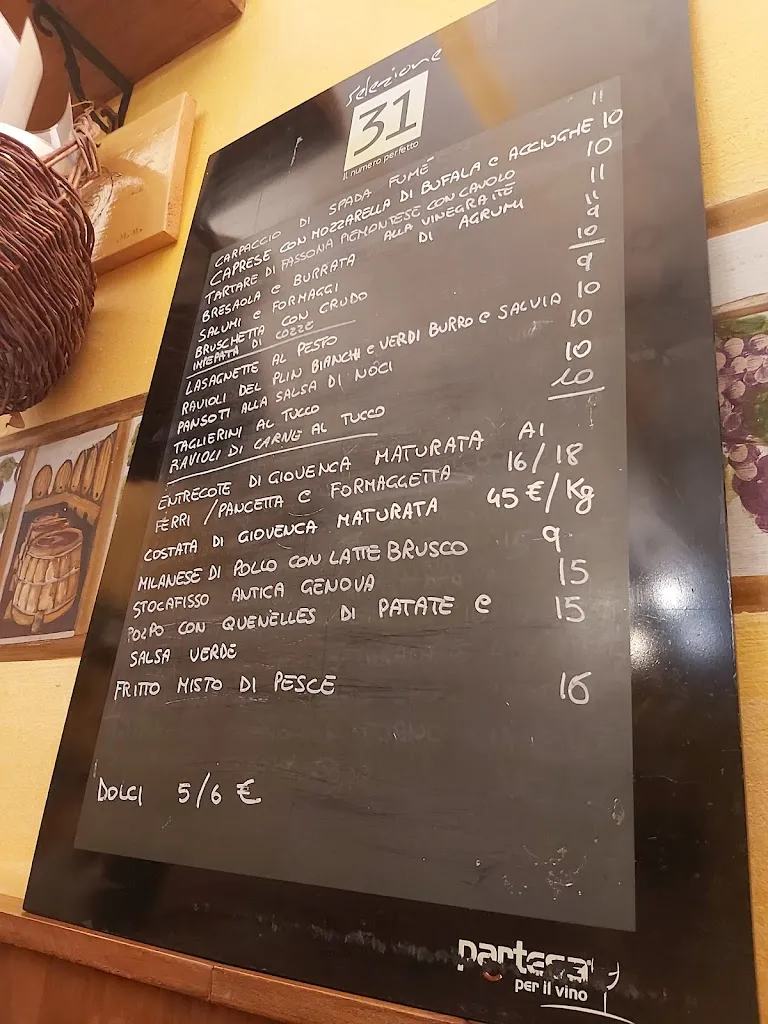 selezione
31
il numero perfetto
CARPACCIO DI SPADA FUMÉ 11
CAPRESE CON MOZZARELLA DI BUFALA e ACCIUGHE 10
TARTARE DI FASSONA PIEMONTESE CON CAVOLO 10
ALLA VINEGRAITE
DI AGRUMI
BRESAOLA e BURRATA 11
SALUMI e FORMAGGI 11
BRUSCHETTA CON CRUDO 9
IMPEPATA DI COZZE 10
LASAGNETTE AL PESTO 9
RAVIOLI DEL PLIN BIANCHI e VERDI BURRO e SALVIA 10
PANSOTI ALLA SALSA DI NOCI 10
TAGLIERINI AL TUCCO 10
RAVIOLI DI CARNE AL TUCCO 10
ENTRECOTE DI GIOVENCA MATURATA AI
FERRI / PANCETTA e FORMAGGETTA 16/18
COSTATA DI GIOVENCA MATURATA 45 €/Kg
MILANESE DI POLLO CON LATTE BRUSCO 9
STOCAFISSO ANTICA GENOVA 15
POLPO CON QUENELLES DI PATATE e 15
SALSA VERDE
FRITTO MISTO DI PESCE 16
DOLCI 5/6 €
partesa
per il vino